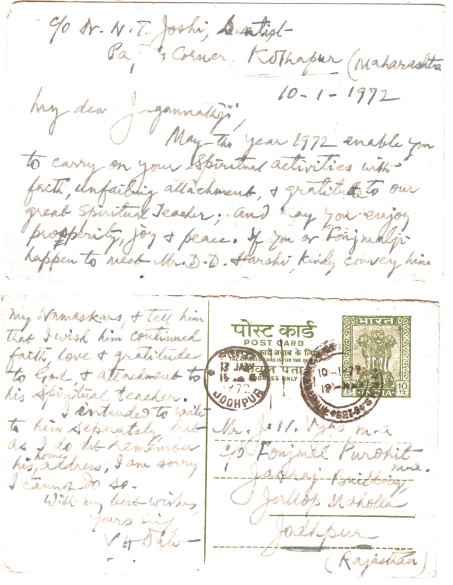 c/o Dr. N. T. Joshi, Dentist
Corner, Kolhapur (Maharashtra
10-1-1972
My dear Jagannathji,
May the year 1972 enable you
to carry on your spiritual activities with
faith, unfailing attachment, & gratitude to our
great Spiritual Teacher; and may you enjoy
prosperity, joy & peace. If you or
happen to meet Mr. D. D. Harshi, kindly convey him
my Namaskars & tell him
that I wish him continued
faith, love & gratitude
to God & attachment to
his Spiritual teacher.
I intended to write
to him separately but
as I do not remember
his home address, I am sorry
I cannot do so.
With my best wishes
yours
पोस्ट कार्ड
POST CARD
भारत
INDIA
ADDRESS ONLY
13 JAN
72
JODHPUR
Mr. J. N. m.a
c/o Purohit
m.a.
Building
Maholla
Jodhpur
(Rajasthan)